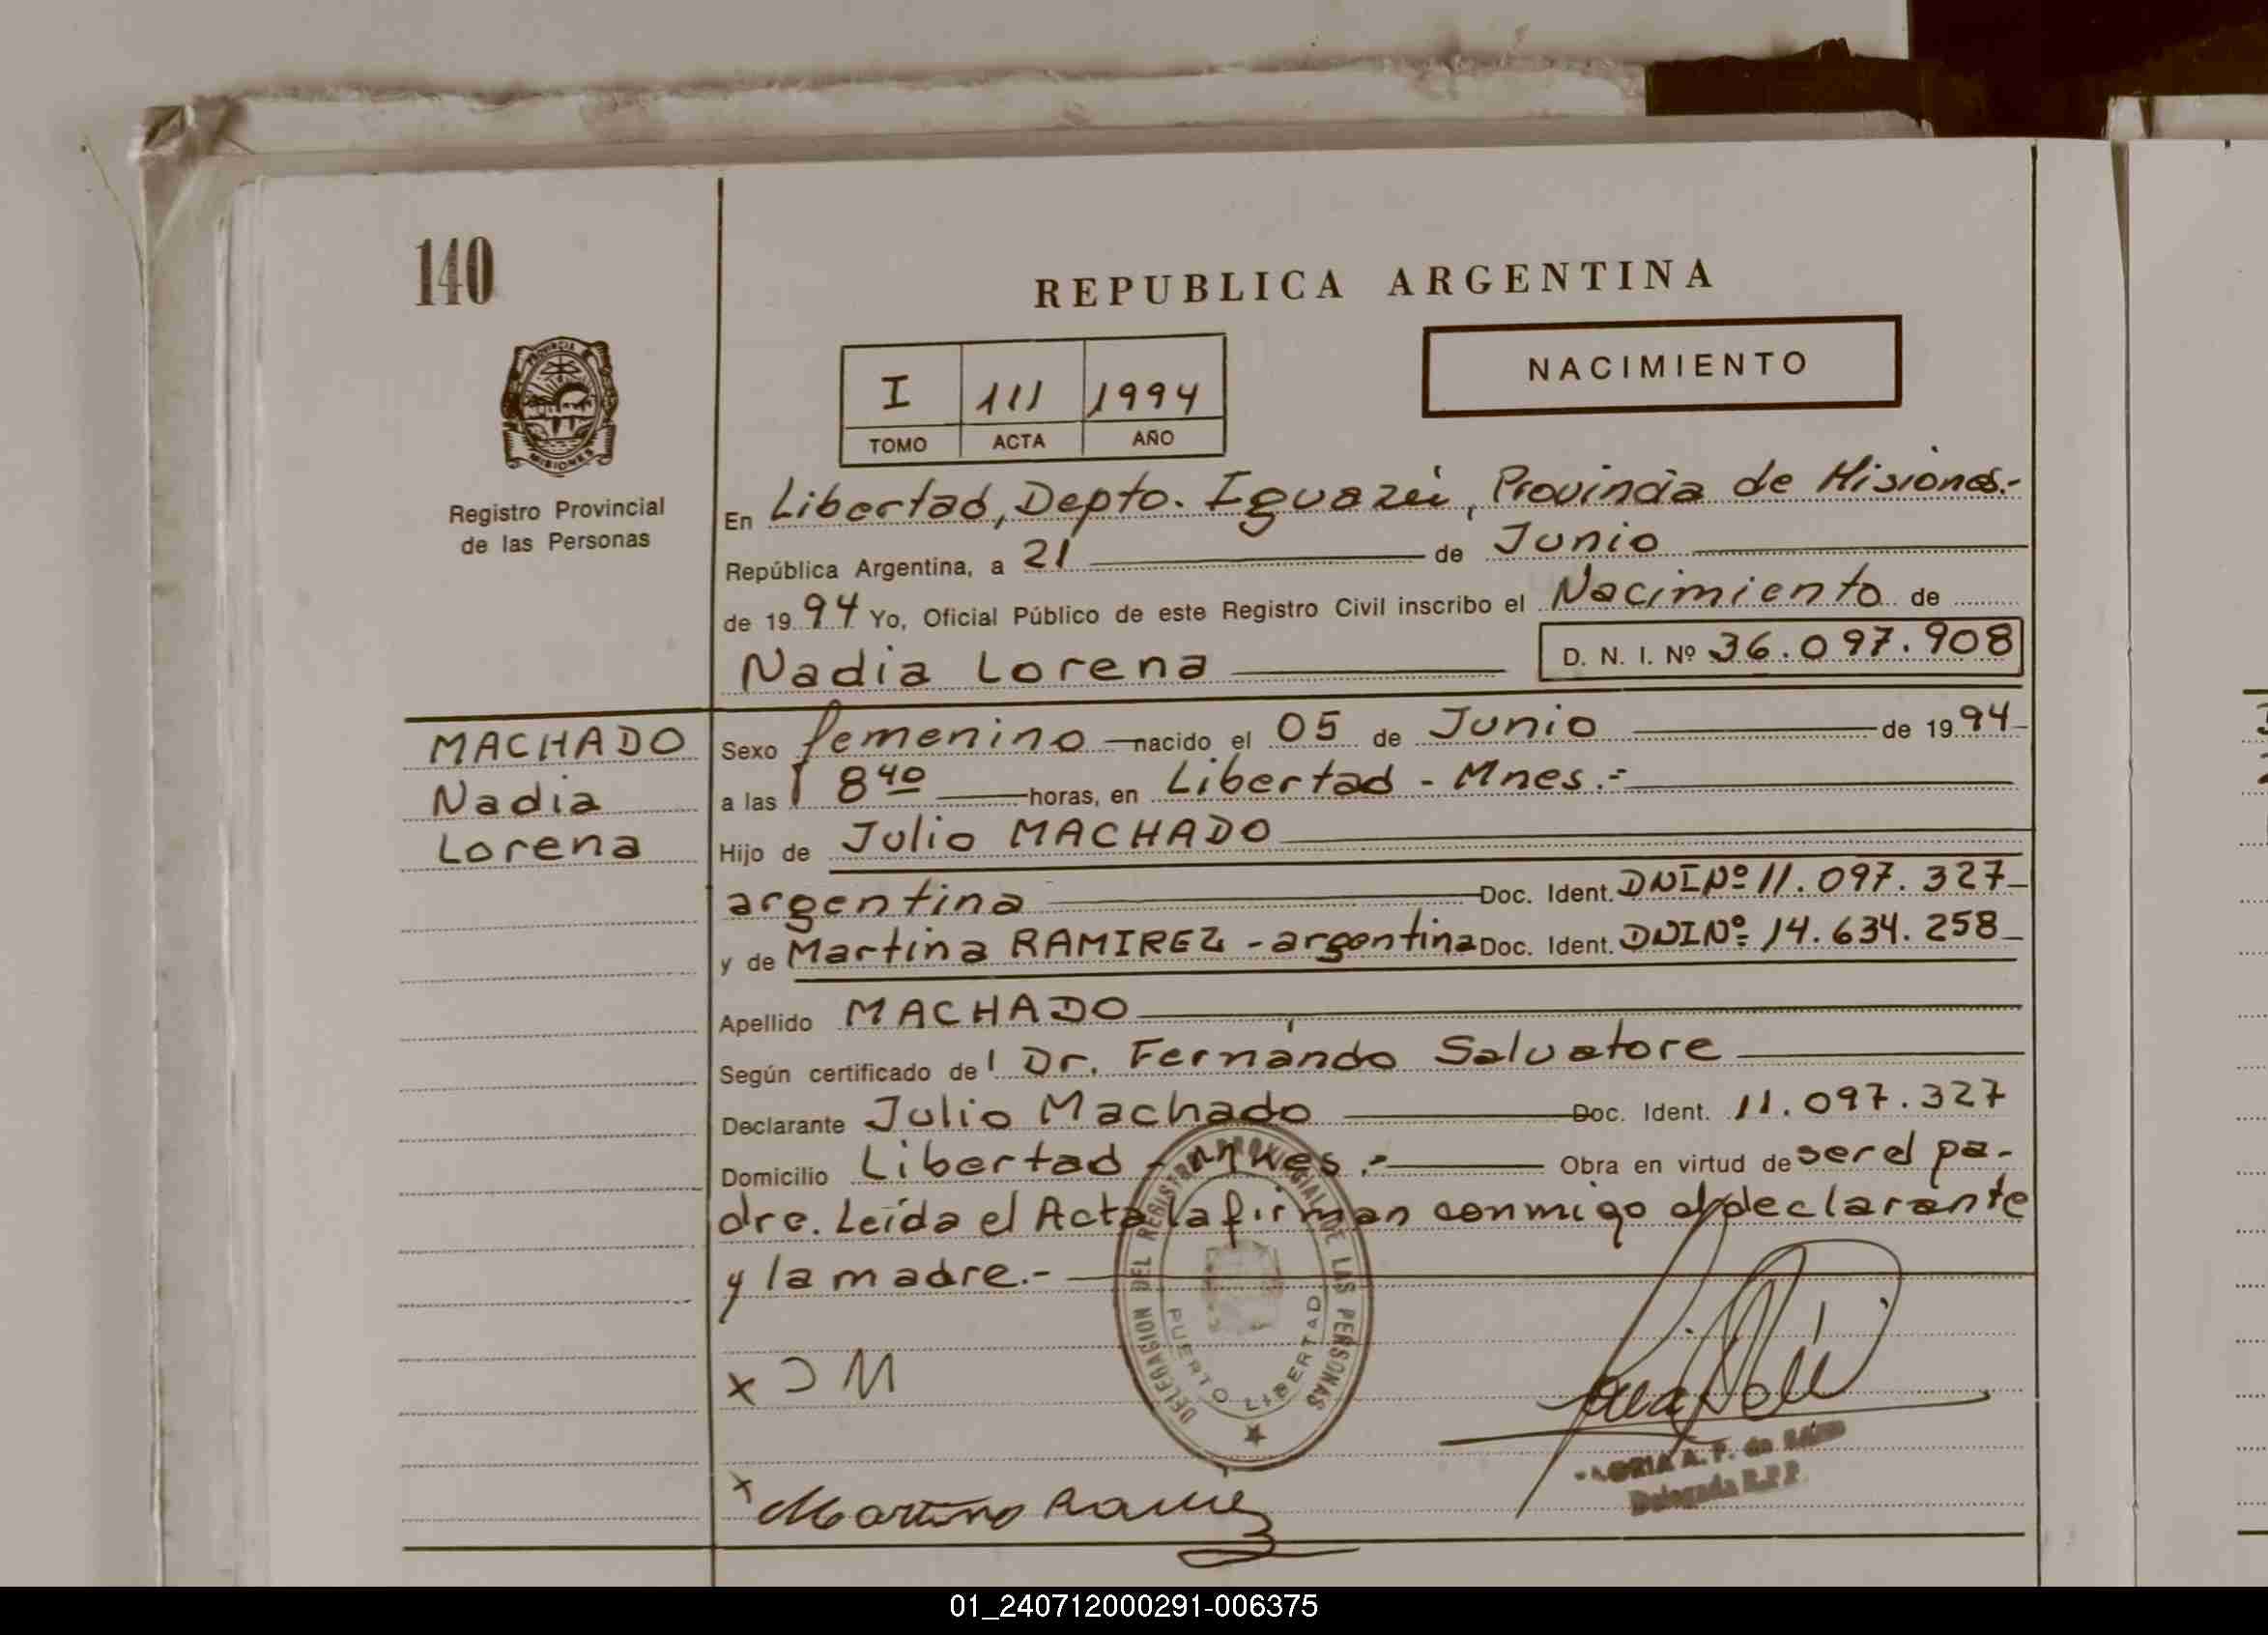 140
REPUBLICA ARGENTINA
PROVINCIA
MISIONES
I 111 1994
TOMO ACTA AÑO
NACIMIENTO
Registro Provincial
de las Personas
En Libertad, Depto. Iguazú, Provincia de Misiones.-
República Argentina, a 21 de Junio
de 1994 Yo, Oficial Público de este Registro Civil inscribo el Nacimiento de
Nadia Lorena D. N. I. Nº 36.097.908
MACHADO
Nadia
Lorena
Sexo femenino nacido el 05 de Junio de 1994
a las 8 40 horas, en Libertad - Mnes.-
Hijo de Julio MACHADO
argentina Doc. Ident. DNI Nº 11.097.327
y de Martina RAMIREZ - argentina Doc. Ident. DNI Nº 14.634.258
Apellido MACHADO
Según certificado de Dr. Fernando Salvatore
Declarante Julio Machado Doc. Ident. 11.097.327
Domicilio Libertad - Mnes.- Obra en virtud de ser el pa-
dre. Leída el Acta la firman conmigo el declarante
y la madre.-
DELEGACION DEL REGISTRO PROVINCIAL DE LAS PERSONAS
PUERTO LIBERTAD
x J M
A. F. de
Delegada R.P.P.
x Martina Ramirez
01_240712000291-006375